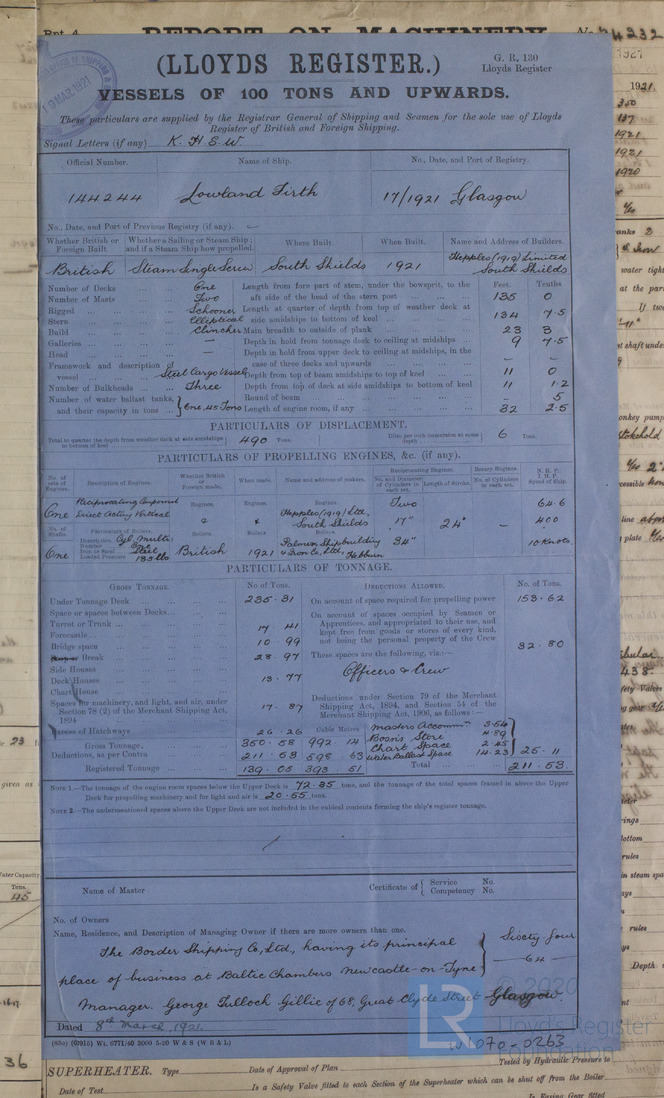 (LLOYDS REGISTER.)
G. R. 130
Lloyds Register
VESSELS OF 100 TONS AND UPWARDS.
These particulars are supplied by the Registrar General of Shipping and Seamen for the sole use of Lloyds
Register of British and Foreign Shipping.
Signal Letters (if any) K. H. S. W.
Official Number. Name of Ship. No., Date, and Port of Registry.
144244 Lowland Firth 17/1921 Glasgow
No., Date, and Port of Previous Registry (if any). —
Whether British or Foreign Built. Whether a Sailing or Steam Ship; and if a Steam Ship how propelled. Where Built. When Built. Name and Address of Builders.
British Steam Single Screw South Shields 1921 Hepples (1919) Limited South Shields
Feet. Tenths
Number of Decks One Length from fore part of stem, under the bowsprit, to the aft side of the head of the stern post 135 0
Number of Masts Two
Rigged Schooner Length at quarter of depth from top of weather deck at side amidships to bottom of keel 134 7.5
Stern Elliptical
Build Clincher Main breadth to outside of plank 23 3
Galleries — Depth in hold from tonnage deck to ceiling at midships 9 7.5
Head — Depth in hold from upper deck to ceiling at midships, in the case of three decks and upwards — —
Framework and description of vessel Steel Cargo Vessel Depth from top of beam amidships to top of keel 11 0
Number of Bulkheads Three Depth from top of deck at side amidships to bottom of keel 11 1.2
Number of water ballast tanks, and their capacity in tons One, 45 Tons Round of beam — 5
Length of engine room, if any 32 2.5
PARTICULARS OF DISPLACEMENT.
Total to quarter the depth from weather deck at side amidships to bottom of keel 490 Tons. Ditto per inch immersion at same depth 6 Tons.
PARTICULARS OF PROPELLING ENGINES, &c. (if any).
No. of sets of Engines. Description of Engines. Whether British or Foreign made. When made. Name and address of makers. Reciprocating Engines. No. and Diameter of Cylinders in each set. Length of Stroke. Rotary Engines. No. of Cylinders in each set. N.H.P. I.H.P. Speed of Ship.
One Reciprocating Compound Direct Acting Vertical Engines. Engines. Engines. Hepples (1919) Ltd., South Shields Two 17" 34" 24" — 64.6 400 10 Knots
No. of Shafts. Particulars of Boilers. Boilers Boilers Boilers
One Description Cyl. Multi. Number One Iron or Steel Steel Loaded Pressure 135 lbs British 1921 Palmers Shipbuilding & Iron Co., Ltd., Hebburn
PARTICULARS OF TONNAGE.
GROSS TONNAGE. No. of Tons. DEDUCTIONS ALLOWED. No. of Tons.
Under Tonnage Deck 235.31 On account of space required for propelling power 153.62
Space or spaces between Decks On account of spaces occupied by Seamen or Apprentices, and appropriated to their use, and kept free from goods or stores of every kind, not being the personal property of the Crew 32.80
Turret or Trunk
Forecastle 17 41
Bridge space 10 99 These spaces are the following, viz.:—
Break 28.97 Officers & Crew
Side Houses
Deck Houses 13.77
Chart House
Spaces for machinery, and light, and air, under Section 78 (2) of the Merchant Shipping Act, 1894 17.87
Deductions under Section 79 of the Merchant Shipping Act, 1894, and Section 54 of the Merchant Shipping Act, 1906, as follows:—
Excess of Hatchways 26.26 Cubic Metres Masters Accommn. 3.54
Gross Tonnage, 350.58 992 14 Boson's Store 4.89
Deductions, as per Contra 211.53 598 63 Chart Space 2.45 Water Ballast Space 14.23 25.11
Registered Tonnage 139.05 393 51 Total 211.53.
NOTE 1.—The tonnage of the engine room spaces below the Upper Deck is 72.35 tons, and the tonnage of the total spaces framed in above the Upper
Deck for propelling machinery and for light and air is 20.55 tons.
NOTE 2.—The undermentioned spaces above the Upper Deck are not included in the cubical contents forming the ship's register tonnage.
Name of Master Certificate of Service No. Competency No.
No. of Owners
Name, Residence, and Description of Managing Owner if there are more owners than one.
The Border Shipping Co, Ltd., having its principal Sixty four
place of business at Baltic Chambers Newcastle-on-Tyne — 64 —
Manager. George Tulloch Gillic of 68, Great Clyde Street Glasgow.
Dated 8th March, 1921.
© 2020
LR Lloyd's Register Foundation
W1070-0263
SUPERHEATER. Type Date of Approval of Plan Tested by Hydraulic Pressure to
Date of Test Is a Safety Valve fitted to each Section of the Superheater which can be shut off from the Boiler